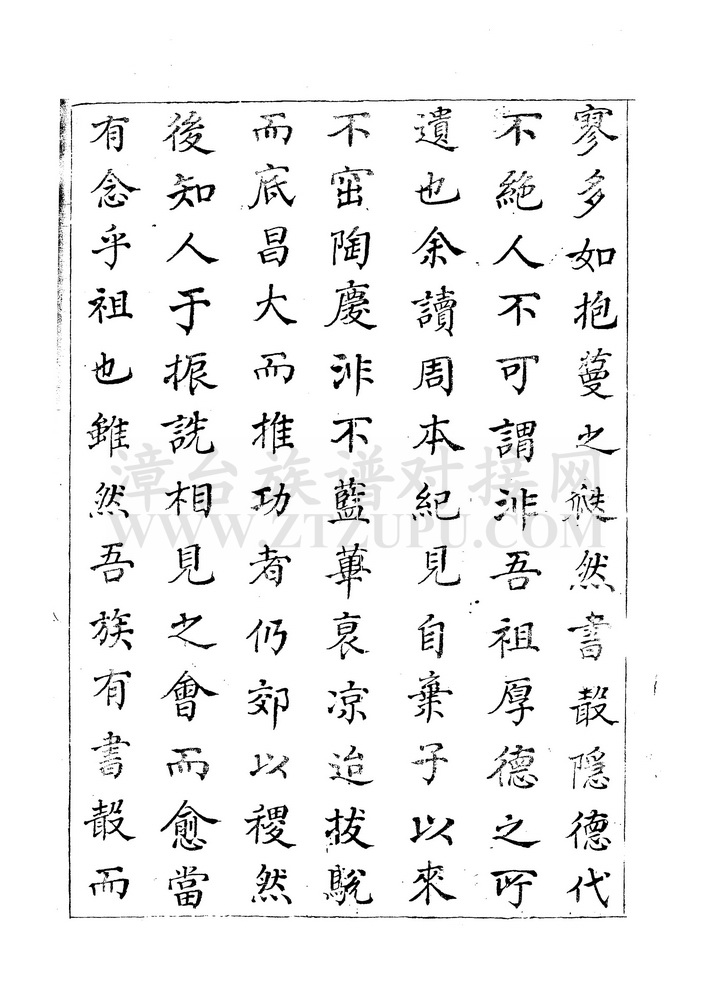 寥多如抱蔓之衰然書散隱德代
不絶人不可謂非吾祖厚德之所
遺也余讀周本紀見自棄子以來
不窋陶慶非不藍蓽哀凉迨拔駾
而底昌大而推功者仍郊以稷然
後知人于振詵相見之會而愈當
有念乎祖也雖然吾族有書散而
漳台族谱对接网
WWW.ZTZUPU.COM